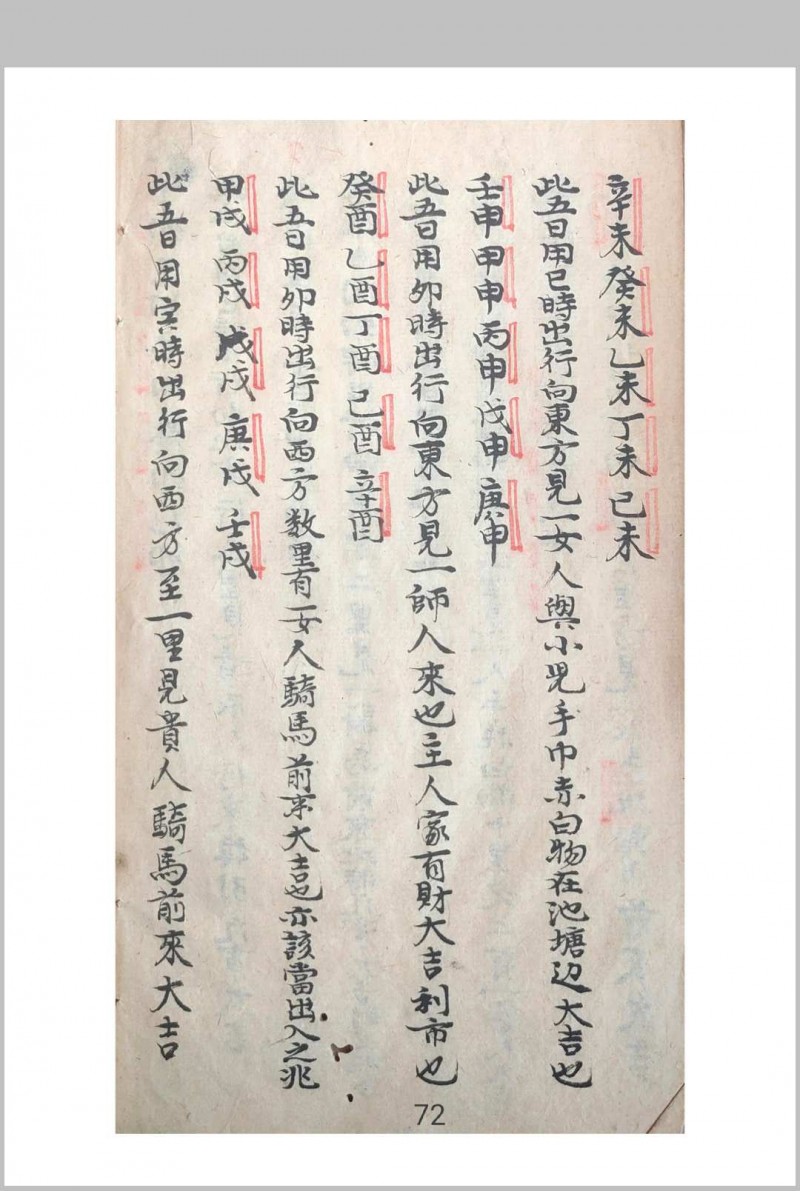 辛未癸未乙未丁未已未
此五日用巳時出行向東方見一女人與小児手巾赤白物在池塘辺大吉也
壬申甲申丙申戊申庚申
此五日用卯時出行向東方見一師人來也主人家有財大吉利市也
癸酉乙酉丁酉己酉辛酉
此五日用卯時出行向西方数里有一女人騎馬前來大吉也亦該當出入之兆
甲戌丙戌戊戌庚戌壬戌
此五日用寅時出行向西方至一里見貴人騎馬前來大吉
72